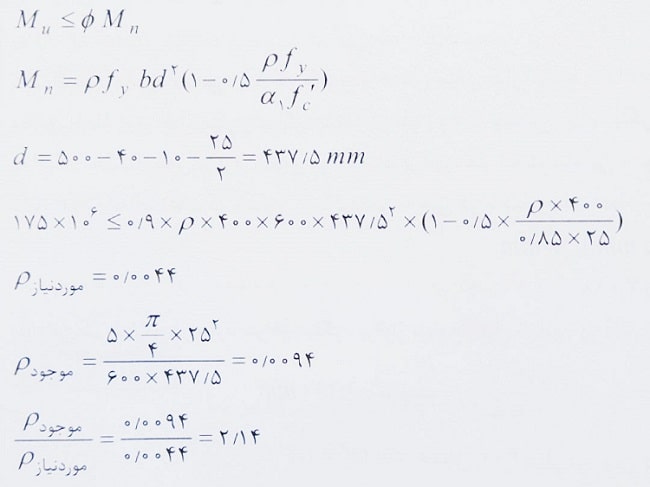 M_u ≤ ϕ M_n
M_n = ρ f_y bd^۲ (۱ − ۰/۵ ρ f_y / α_۱ f_c′)
d = ۵۰۰ − ۴۰ − ۱۰ − ۲۵/۲ = ۴۳۷/۵ mm
۱۷۵ × ۱۰^۶ ≤ ۰/۹ × ρ × ۴۰۰ × ۶۰۰ × ۴۳۷/۵^۲ × (۱ − ۰/۵ × ρ × ۴۰۰ / ۰/۸۵ × ۲۵)
ρ موردنیاز = ۰/۰۰۴۴
ρ موجود = ۵ × π/۴ × ۲۵^۲ / ۶۰۰ × ۴۳۷/۵ = ۰/۰۰۹۴
ρ موجود / ρ موردنیاز = ۰/۰۰۹۴ / ۰/۰۰۴۴ = ۲/۱۴